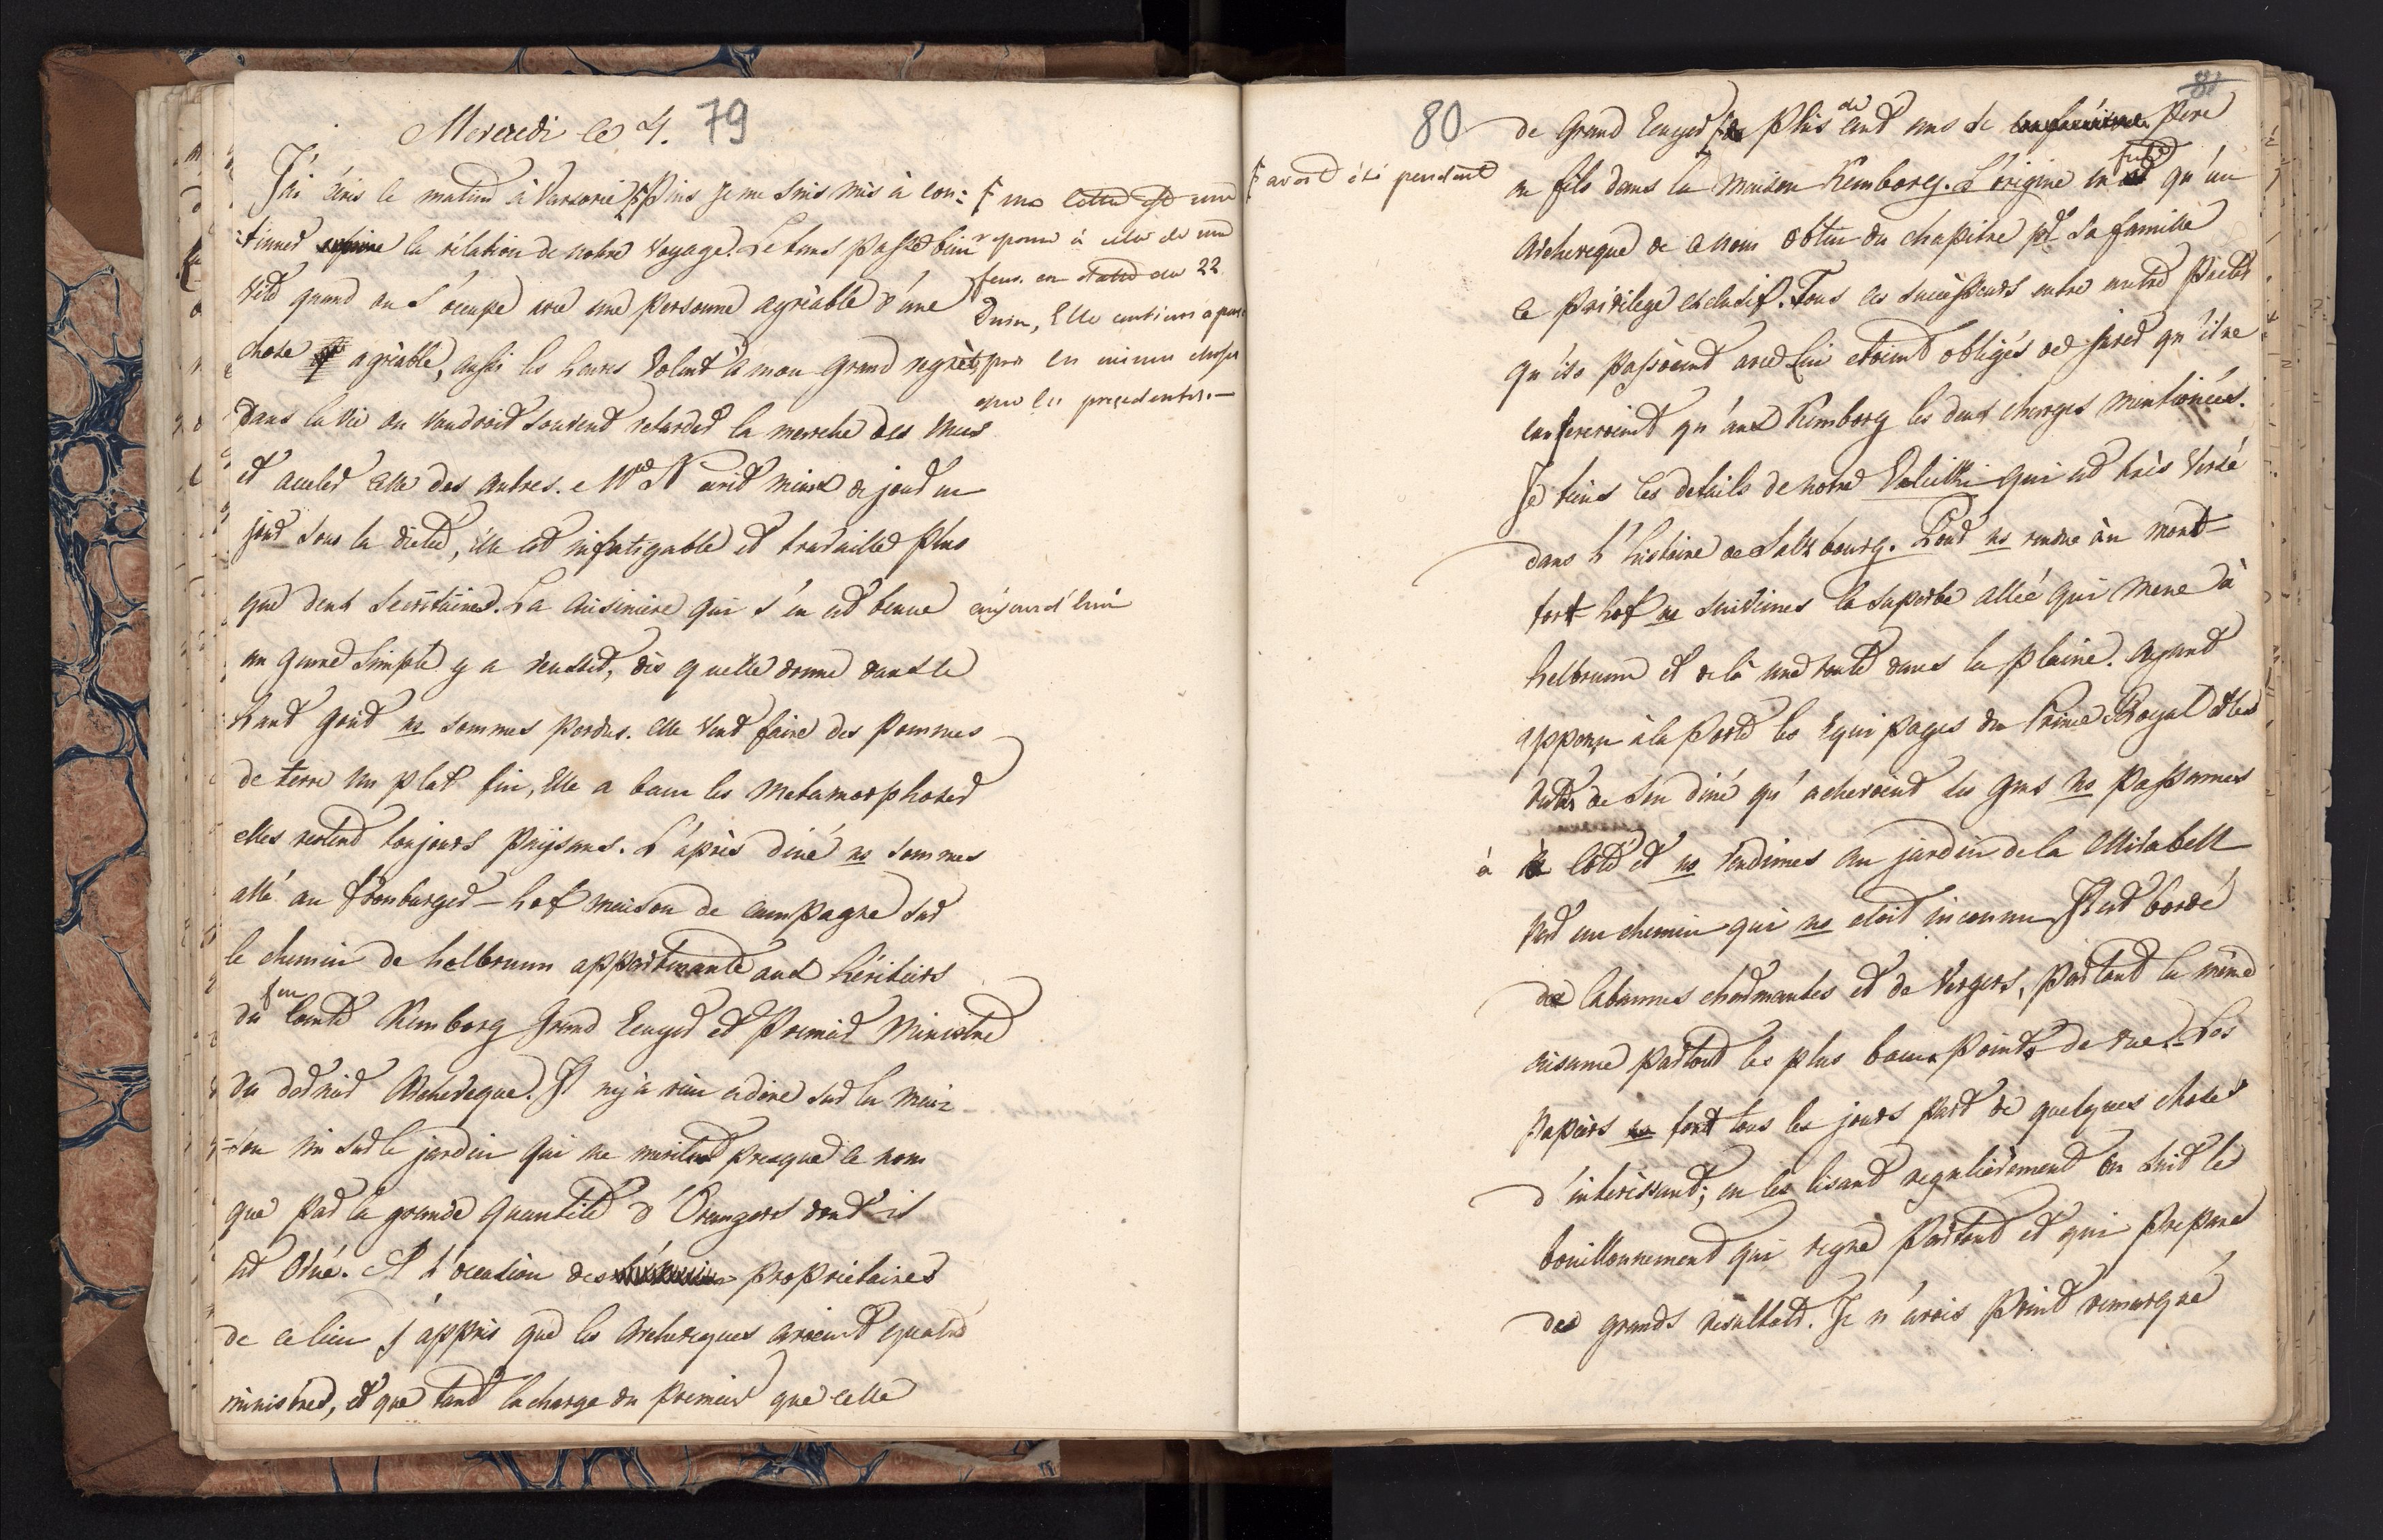 Mercredi le 4. 79
J'ai écris le matin à Varsovie Puis je me suis mis à con-
tinuer la rélation de notre voyage. Le tems passe bien
vite quand on s'ocupe avec une personne agréable d'une
chose agréable, aussi les heures volent à mon grand regrèt
dans la vie on voudroit souvent retarder la marche des unes
et celle des autres. Mme N écrit mieux de jour en
jour sous la dictée, elle est infatigable et travaille plus
que deux Secrétaires. La cuisiniere qui s'en est tenue aujourd'hui
au genre simple y a réussit, dès qu'elle donne dans le
haut gout ns sommes perdus. elle veut faire des pommes
de terre un plat fin, elle a beau les metamorphoser
elles restent toujours paysanes. L'après diné ns sommes
allé au hof maison de campagne sur
le chemin de helbrunn appartenante aux héritiers
feu
du Comte Kimborg Grand Ecuyer et Premier Ministre
du dernier Archeveque. Il n'y a rien a dire sur la mai-
son ni sur le jardin qui ne merite presque ce nom
que par la grande quantité d'Orangers dont il
est orné. A l'ocasion des propriétaires
de ce lieu j'appris que les Archeveques avoient quatre
ministres, et que tant la charge du premier que celle
ma lettre est une
reponse à celle de ma
en date du 22
Juin, Elle contient a peu
près les mêmes choses
que les precedentes.—
80 81
de Grand Ecuyer plus de cent ans de pere
avoit été pendant
en fils dans la maison Kimborg. L'origine en fut qu'un
Archeveque de ce nom obtin du chapitre pr sa famille
ce privilege exclusif. Tous les successeurs entre autre pactes
qu'ils passoient avec lui etoient obligés de jurer qu'il ne
confereroient qu'aux Kimborg les deux charges mentionées.
Je tiens ces details de notre qui est très versé
dans l'histoire de Salzbourg. Pour ns rendre àu mont-
fort hof ns suivimes la superbe allée qui mene à
helbrunn et de là une route dans la plaine. ayant
apperçu à la porte les Equipages du Prince Royal et les
de son diné qu'achevoient ses gens ns passames
à coté et ns rendimes au jardin de la Mirabell
par un chemin qui ns etoit inconnu Il est bordé
de cabannes charmantes et de vergers, partout la même
aisance partout les plus beaux points de vue.- Les
papiers ns font tous les jours part de quelques choses
d'interessant; en les lisant regulierement on suit le
bouillonnement qui regne partout et qui prepare
des grands resultats. Je n'avois point remarqué